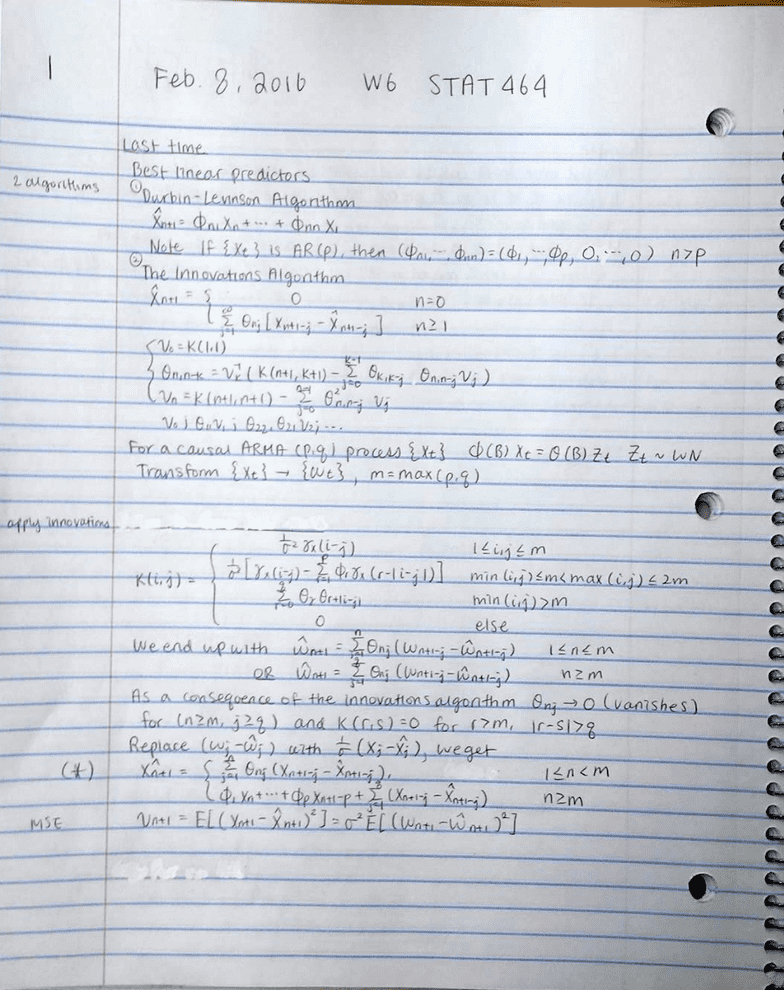 1
Feb. 8, 2016 W6 STAT 464
Last time
Best linear predictors
2 algorithms
① Durbin-Levinson Algorithm
X̂n+1 = Φn1 Xn + ··· + Φnn X1
Note If {Xt} is AR(p), then (Φn1, ···, Φnn) = (Φ1, ···, Φp, 0, ···, 0) n>p
② The Innovations Algorithm
X̂n+1 = { 0 n=0
Σ j=1 ∞ θnj [Xn+1-j - X̂n+1-j] n≥1
{ V0 = K(1,1)
θn,n-k = Vk⁻¹ (K(n+1, k+1) - Σ j=0 k-1 θk,k-j θn,n-j Vj)
Vn = K(n+1, n+1) - Σ j=0 n-1 θ²n,n-j Vj
V0; θ11, V1; θ22, θ21, V2; ...
For a causal ARMA (p,q) process {Xt} Φ(B) Xt = θ(B) Zt Zt ~ WN
Transform {Xt} → {Wt}, m = max(p,q)
apply innovations
K(i,j) = { 1/σ² γx(i-j) 1≤i,j≤m
1/σ² [γx(i-j) - Σ r=1 p Φr γx(r-|i-j|)] min(i,j)≤m<max(i,j)≤2m
Σ r=0 q θr θr+|i-j| min(i,j)>m
0 else
We end up with Ŵn+1 = Σ j=1 n θnj (Wn+1-j - Ŵn+1-j) 1≤n≤m
OR Ŵn+1 = Σ j=1 q θnj (Wn+1-j - Ŵn+1-j) n≥m
As a conseqence of the innovations algorithm θnj → 0 (vanishes)
for (n≥m, j≥q) and K(r,s)=0 for r>m, |r-s|>q
Replace (Wj-Ŵj) with 1/σ (Xj-X̂j), we get
(*) X̂n+1 = { Σ j=1 n θnj (Xn+1-j - X̂n+1-j), 1≤n<m
Φ1 Xn + ··· + Φp Xn+1-p + Σ j=1 q (Xn+1-j - X̂n+1-j) n≥m
MSE Vn+1 = E[(Xn+1 - X̂n+1)²] = σ² E[(Wn+1 - Ŵn+1)²]